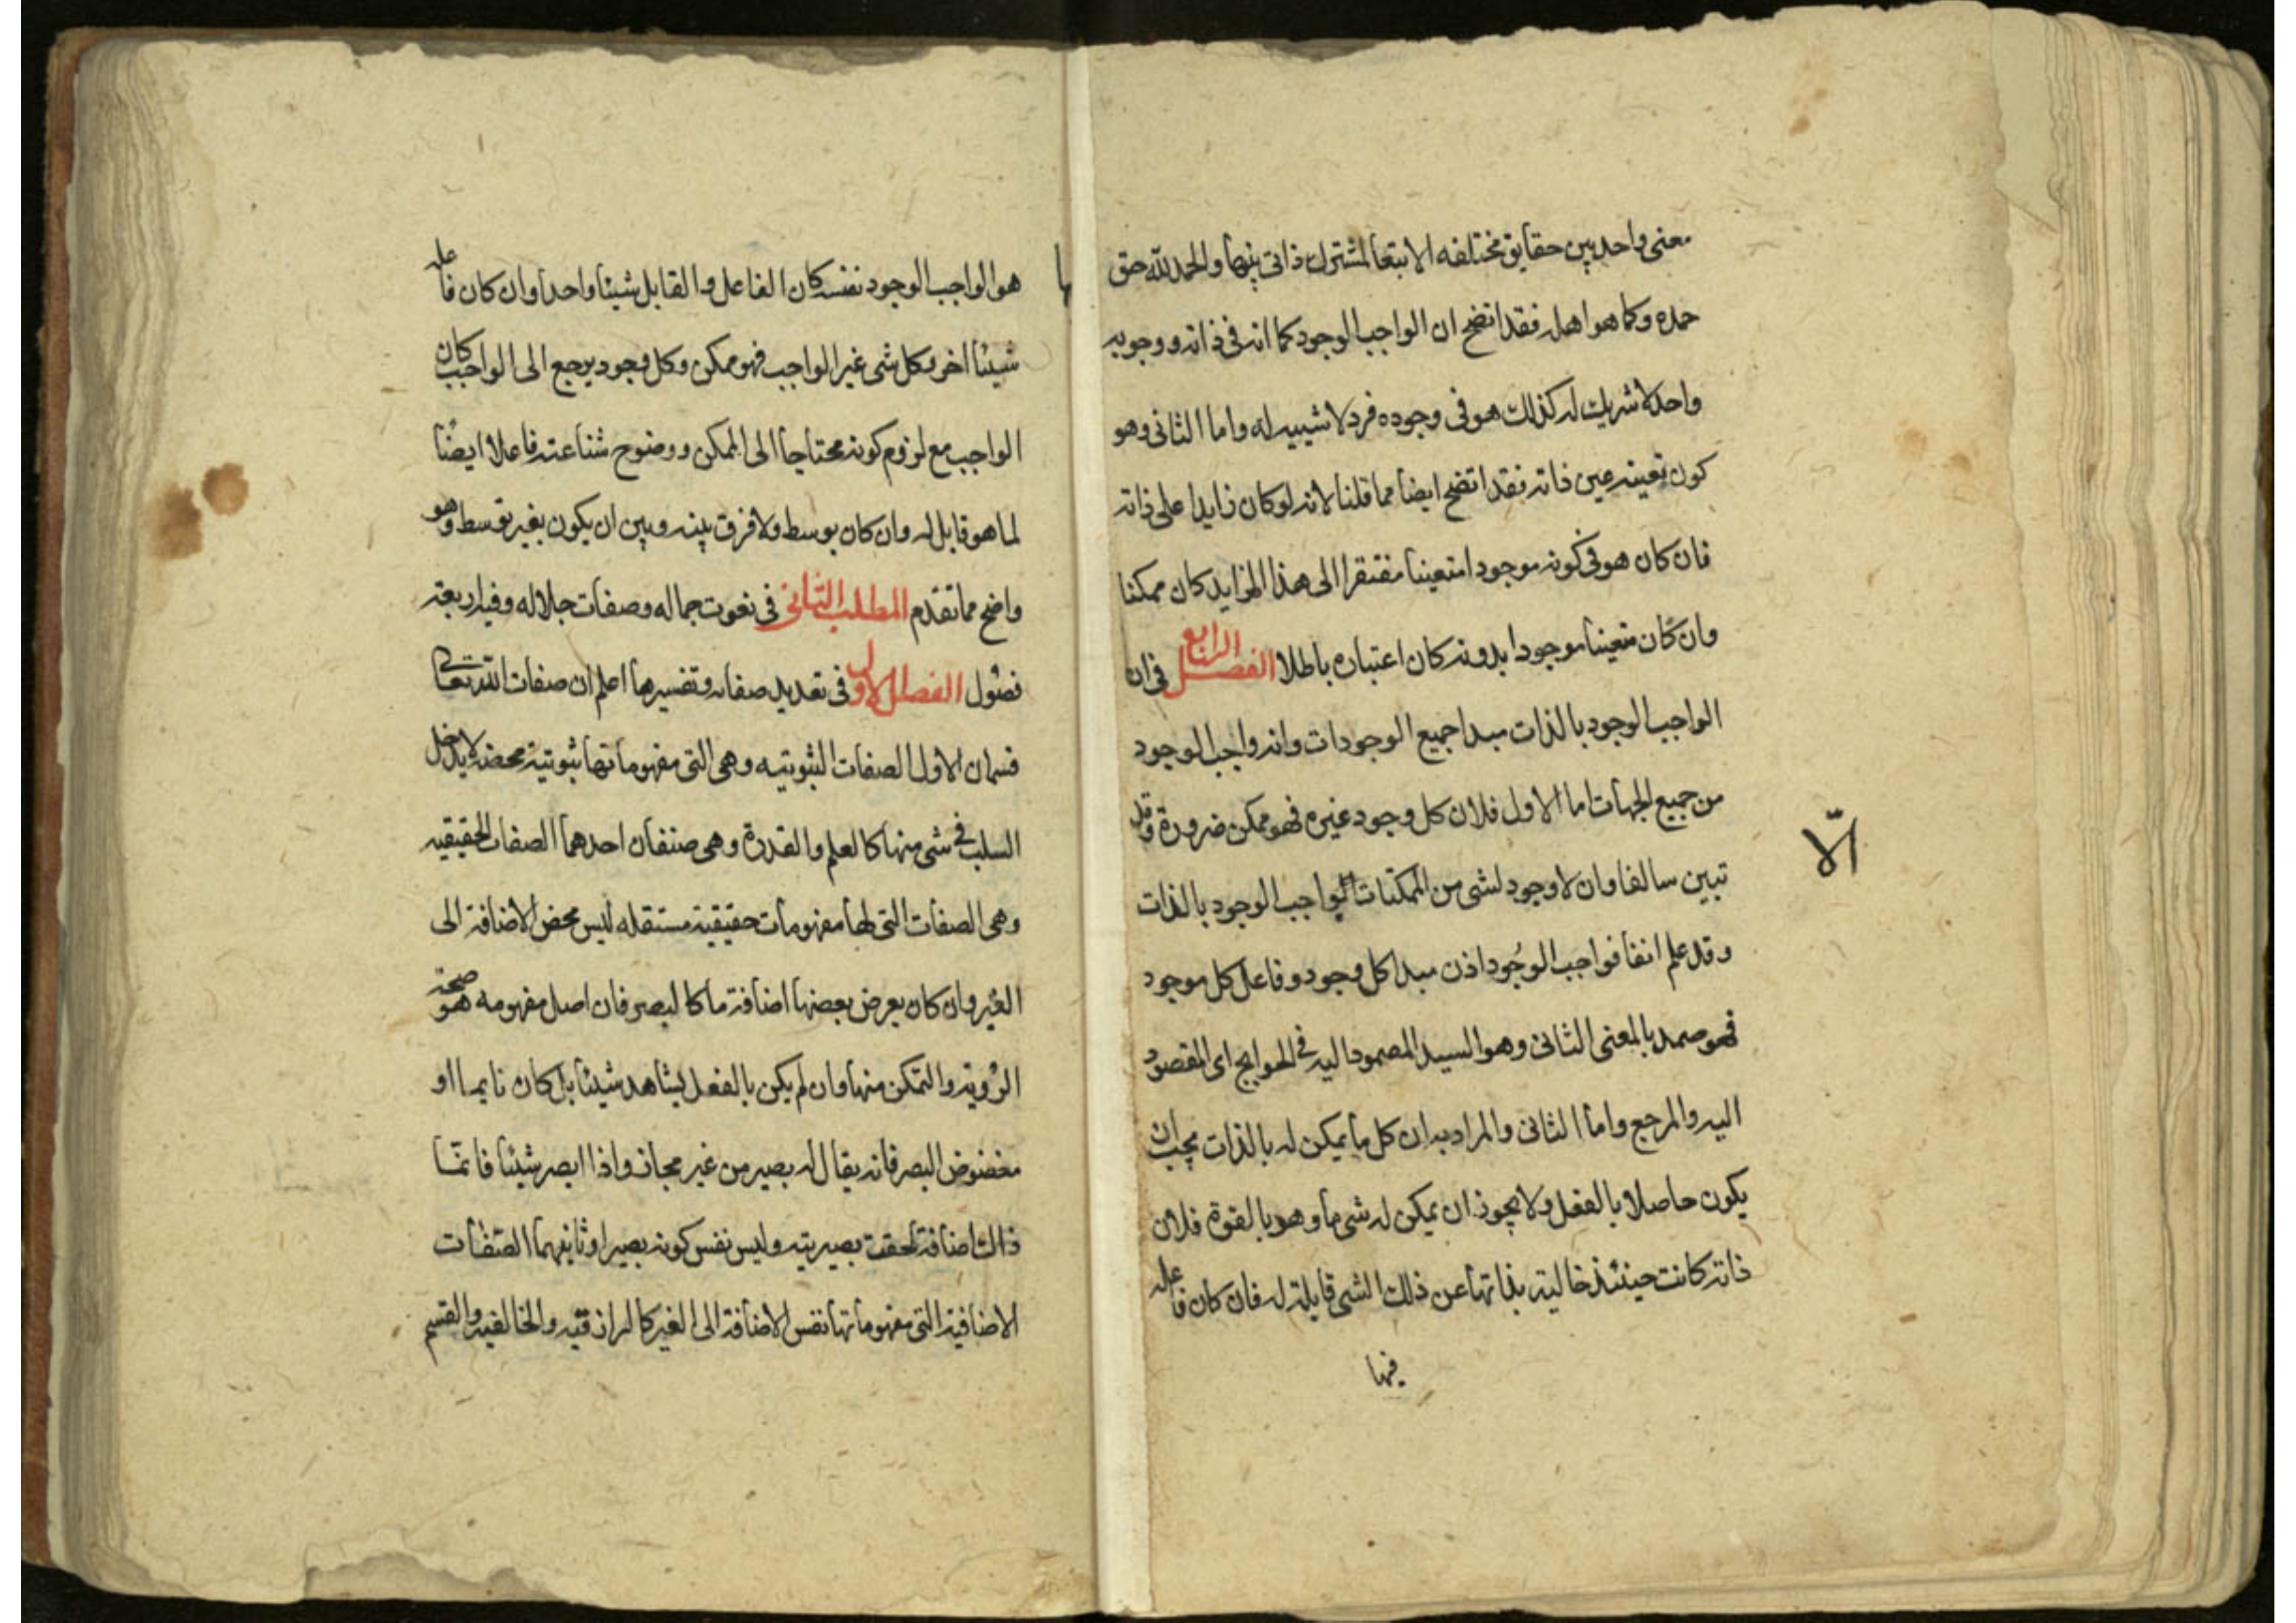 معنى واحد بين حقايق مختلفه الا بتعا لمشترك ذاتى بينها والحمد لله حق
حمده وكما هو اهله فقد اتضح ان الواجب الوجود كما انه فى ذاته ووجوبه
واحد لا شريك له كذلك هو فى وجوده فرد لا شبيه له واما الثانى وهو
كون تعينه عين ذاته فقد اتضح ايضا مما قلنا لانه لو كان زايدا على ذاته
فان كان هو فى كونه موجودا متعينا مفتقرا الى هذا الزايد كان ممكنا
وان كان متعينا موجودا بدونه كان اعتباره باطلا الفصل الرابع فى ان
الواجب الوجود بالذات مبدا جميع الوجودات وانه واجب الوجود
من جميع الجهات اما الاول فلان كل وجود غيره فهو ممكن ضرورة وقد
تبين سالفا وان لا وجود لشى من الممكنات لواجب الوجود بالذات
الّا
وقد علم انفا فواجب الوجُود اذن مبدا كل وجود وفاعل كل موجود
فهو صمد بالمعنى الثانى وهو السيد المصمود اليه فى الحوايج اى المقصود
اليه والمرجع واما الثانى والمراد به ان كل ما يمكن له بالذات يجب ان
يكون حاصلا بالفعل ولا يجوز ان يمكن له شى ما وهو بالقوة فلان
ذاته كانت حينئذ خالية بذاتها عن ذلك الشى قابلة له فان كان فاعله
فيها
ها
هو الواجب الوجود نفسه كان الفاعل والقابل شيئا واحدا وان كان فاعله
شيئا اخر وكل شى غير الواجب فهو ممكن وكل وجود يرجع الى الواجب كان
الواجب مع لزوم كونه محتاجا الى الممكن ووضوح شناعته فاعلا ايضًا
لما هو قابل له وان كان بوسط ولا فرق بينه وبين ان يكون بغير توسط وهو
واضح مما تقدم المطلب الثانى فى نعوت جماله وصفات جلاله وفيه اربعة
فصول الفصل الاول فى تعديد صفاته وتفسيرها اعلم ان صفات الله تعالى
قسمان الاول الصفات الثبوتيه وهى التى مفهوماتها ثبوتية محضه لا يدخل
السلب فى شى منها كالعلم والقدرة وهى صنفان احدهما الصفات الحقيقيه
وهى الصفات التى لها مفهومات حقيقية مستقله ليس محض الاضافة الى
الغير وان كان يعرض بعضها اضافة ما كالبصر فان اصل مفهومه هو صحة
الرؤية والتمكن منها وان لم يكن بالفعل يشاهد شيئا بل كان نايما او
مغضوض البصر فانه يقال له بصير من غير مجاز واذا ابصر شيئا فانمّا
ذالك اضافة لحقت بصيريته وليس نفس كونه بصيرا وثانيهما الصّفات
الاضافية التى مفهوماتها نفس الاضافة الى الغير كالرازقيه والخالقيه والقسم